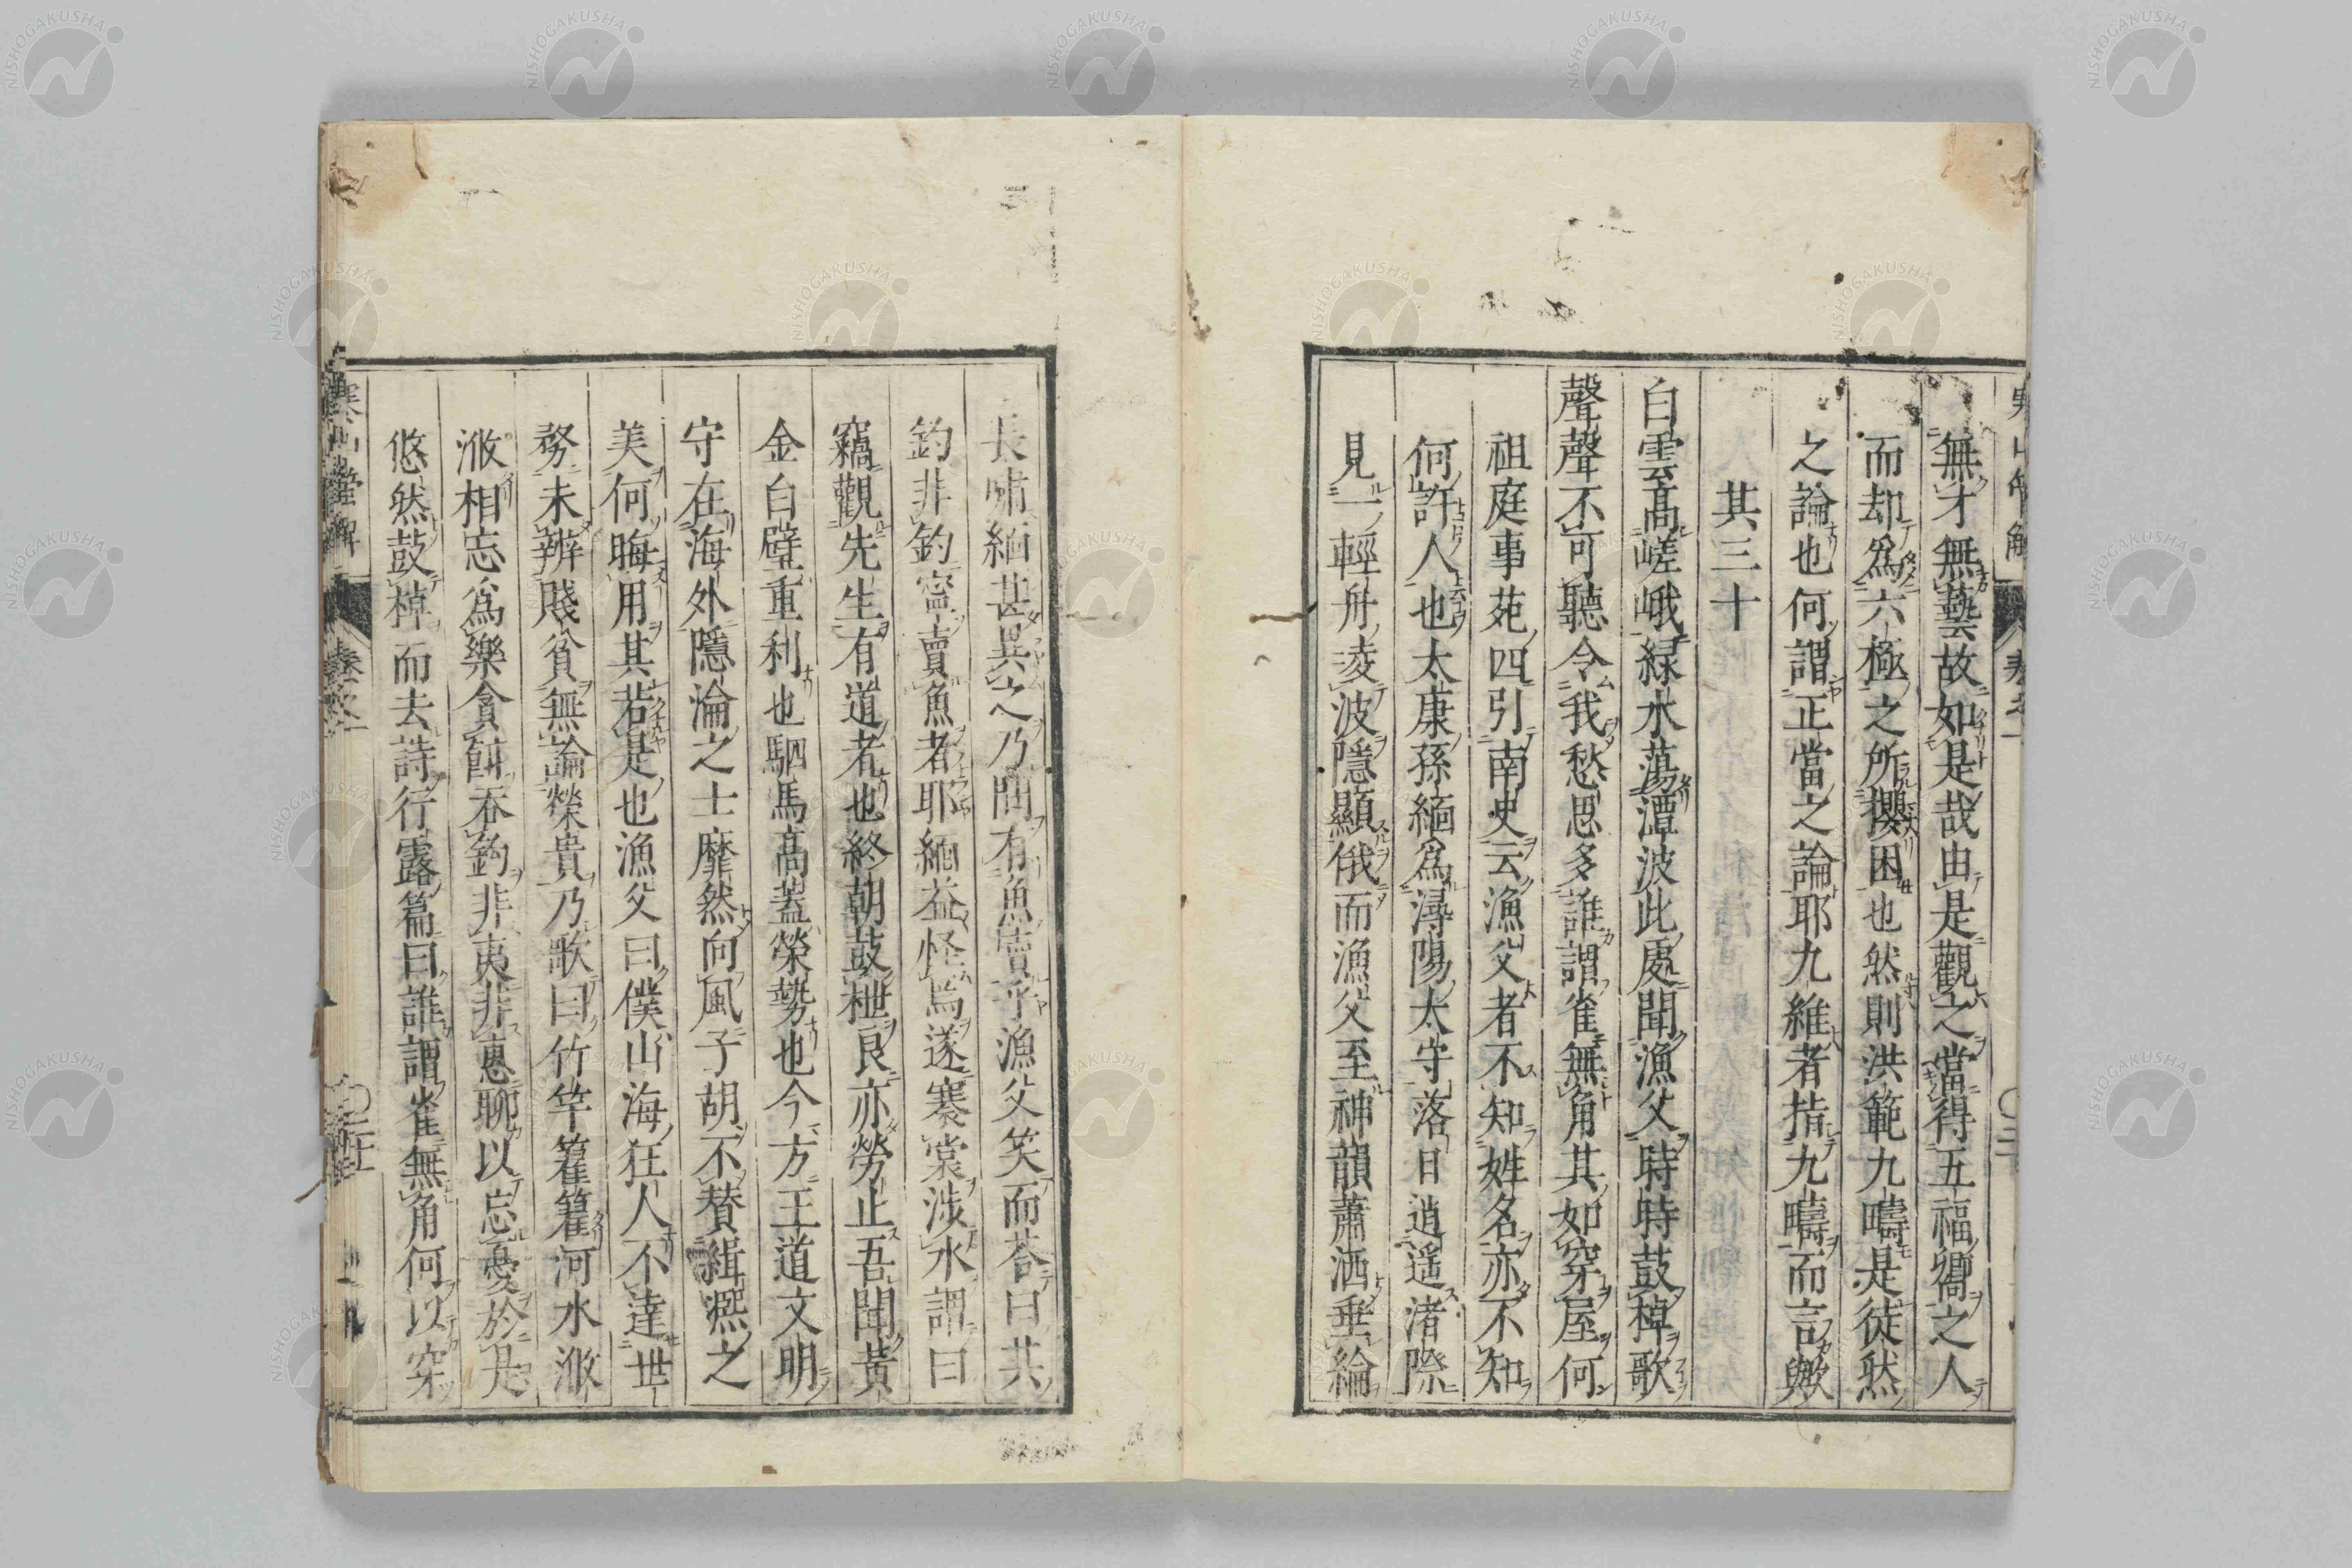 無才無藝故如是哉由是觀之當得五福嚮之人
而却爲六極之所攖困也然則洪範九疇是徒然
之論也何謂正當之論耶九維者指九疇而言歟
其三十
白雲高嵯峨緑水蕩潭波此處聞漁父時時鼓棹歌
聲聲不可聽令我愁思多誰謂雀無角其如穿屋何
祖庭事苑四引南史云漁父者不知姓名亦不知
何許人也太康孫緬爲潯陽太守落日逍遥渚際
見一輕舟凌波隱顯俄而漁父至神韻蕭洒垂綸
長嘯緬甚異之乃問有魚賣乎漁父笑而荅曰其
釣非釣寧賣魚者耶緬益怪焉遂褰裳涉水謂曰
竊觀先生有道者也終朝鼓枻良亦勞止吾聞黃
金白璧重利也駟馬高蓋榮勢也今方王道文明
守在海外隱淪之士靡然向風子胡不賛緝凞之
美何晦用其若是也漁父曰僕山海狂人不達世
務未辨賤貧無論榮貴乃歌曰竹竿籊籊河水浟
浟相忘爲樂貪餌吞鉤非夷非惠聊以忘憂於是
悠然鼓棹而去詩行露篇曰誰謂雀無角何以穿